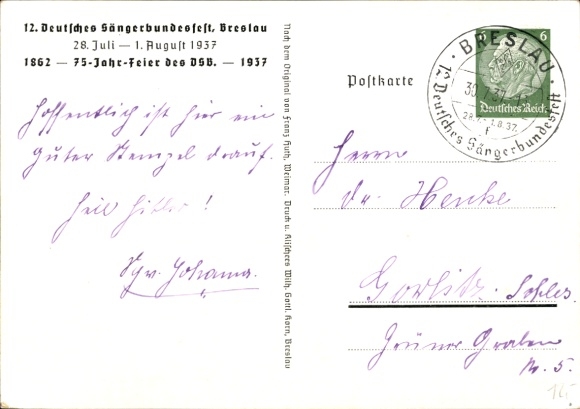 12. Deutsches Sängerbundesfest, Breslau
28. Juli — 1. August 1937
1862 — 75-Jahr-Feier des DSB. — 1937
Hoffentlich ist hier ein
guter Stempel drauf.
Heil Hitler!
Johanna.
Nach dem Original von Franz Huth, Weimar. Druck u. Klischees Wilh. Gottl. Korn, Breslau
Postkarte
6
Deutsches Reich
BRESLAU
28.7.-1.8.37.
f
12. Deutsches Sängerbundesfest
Herrn
Dr. Henke
Görlitz. Schles.
Grüner Graben
Nr. 5.